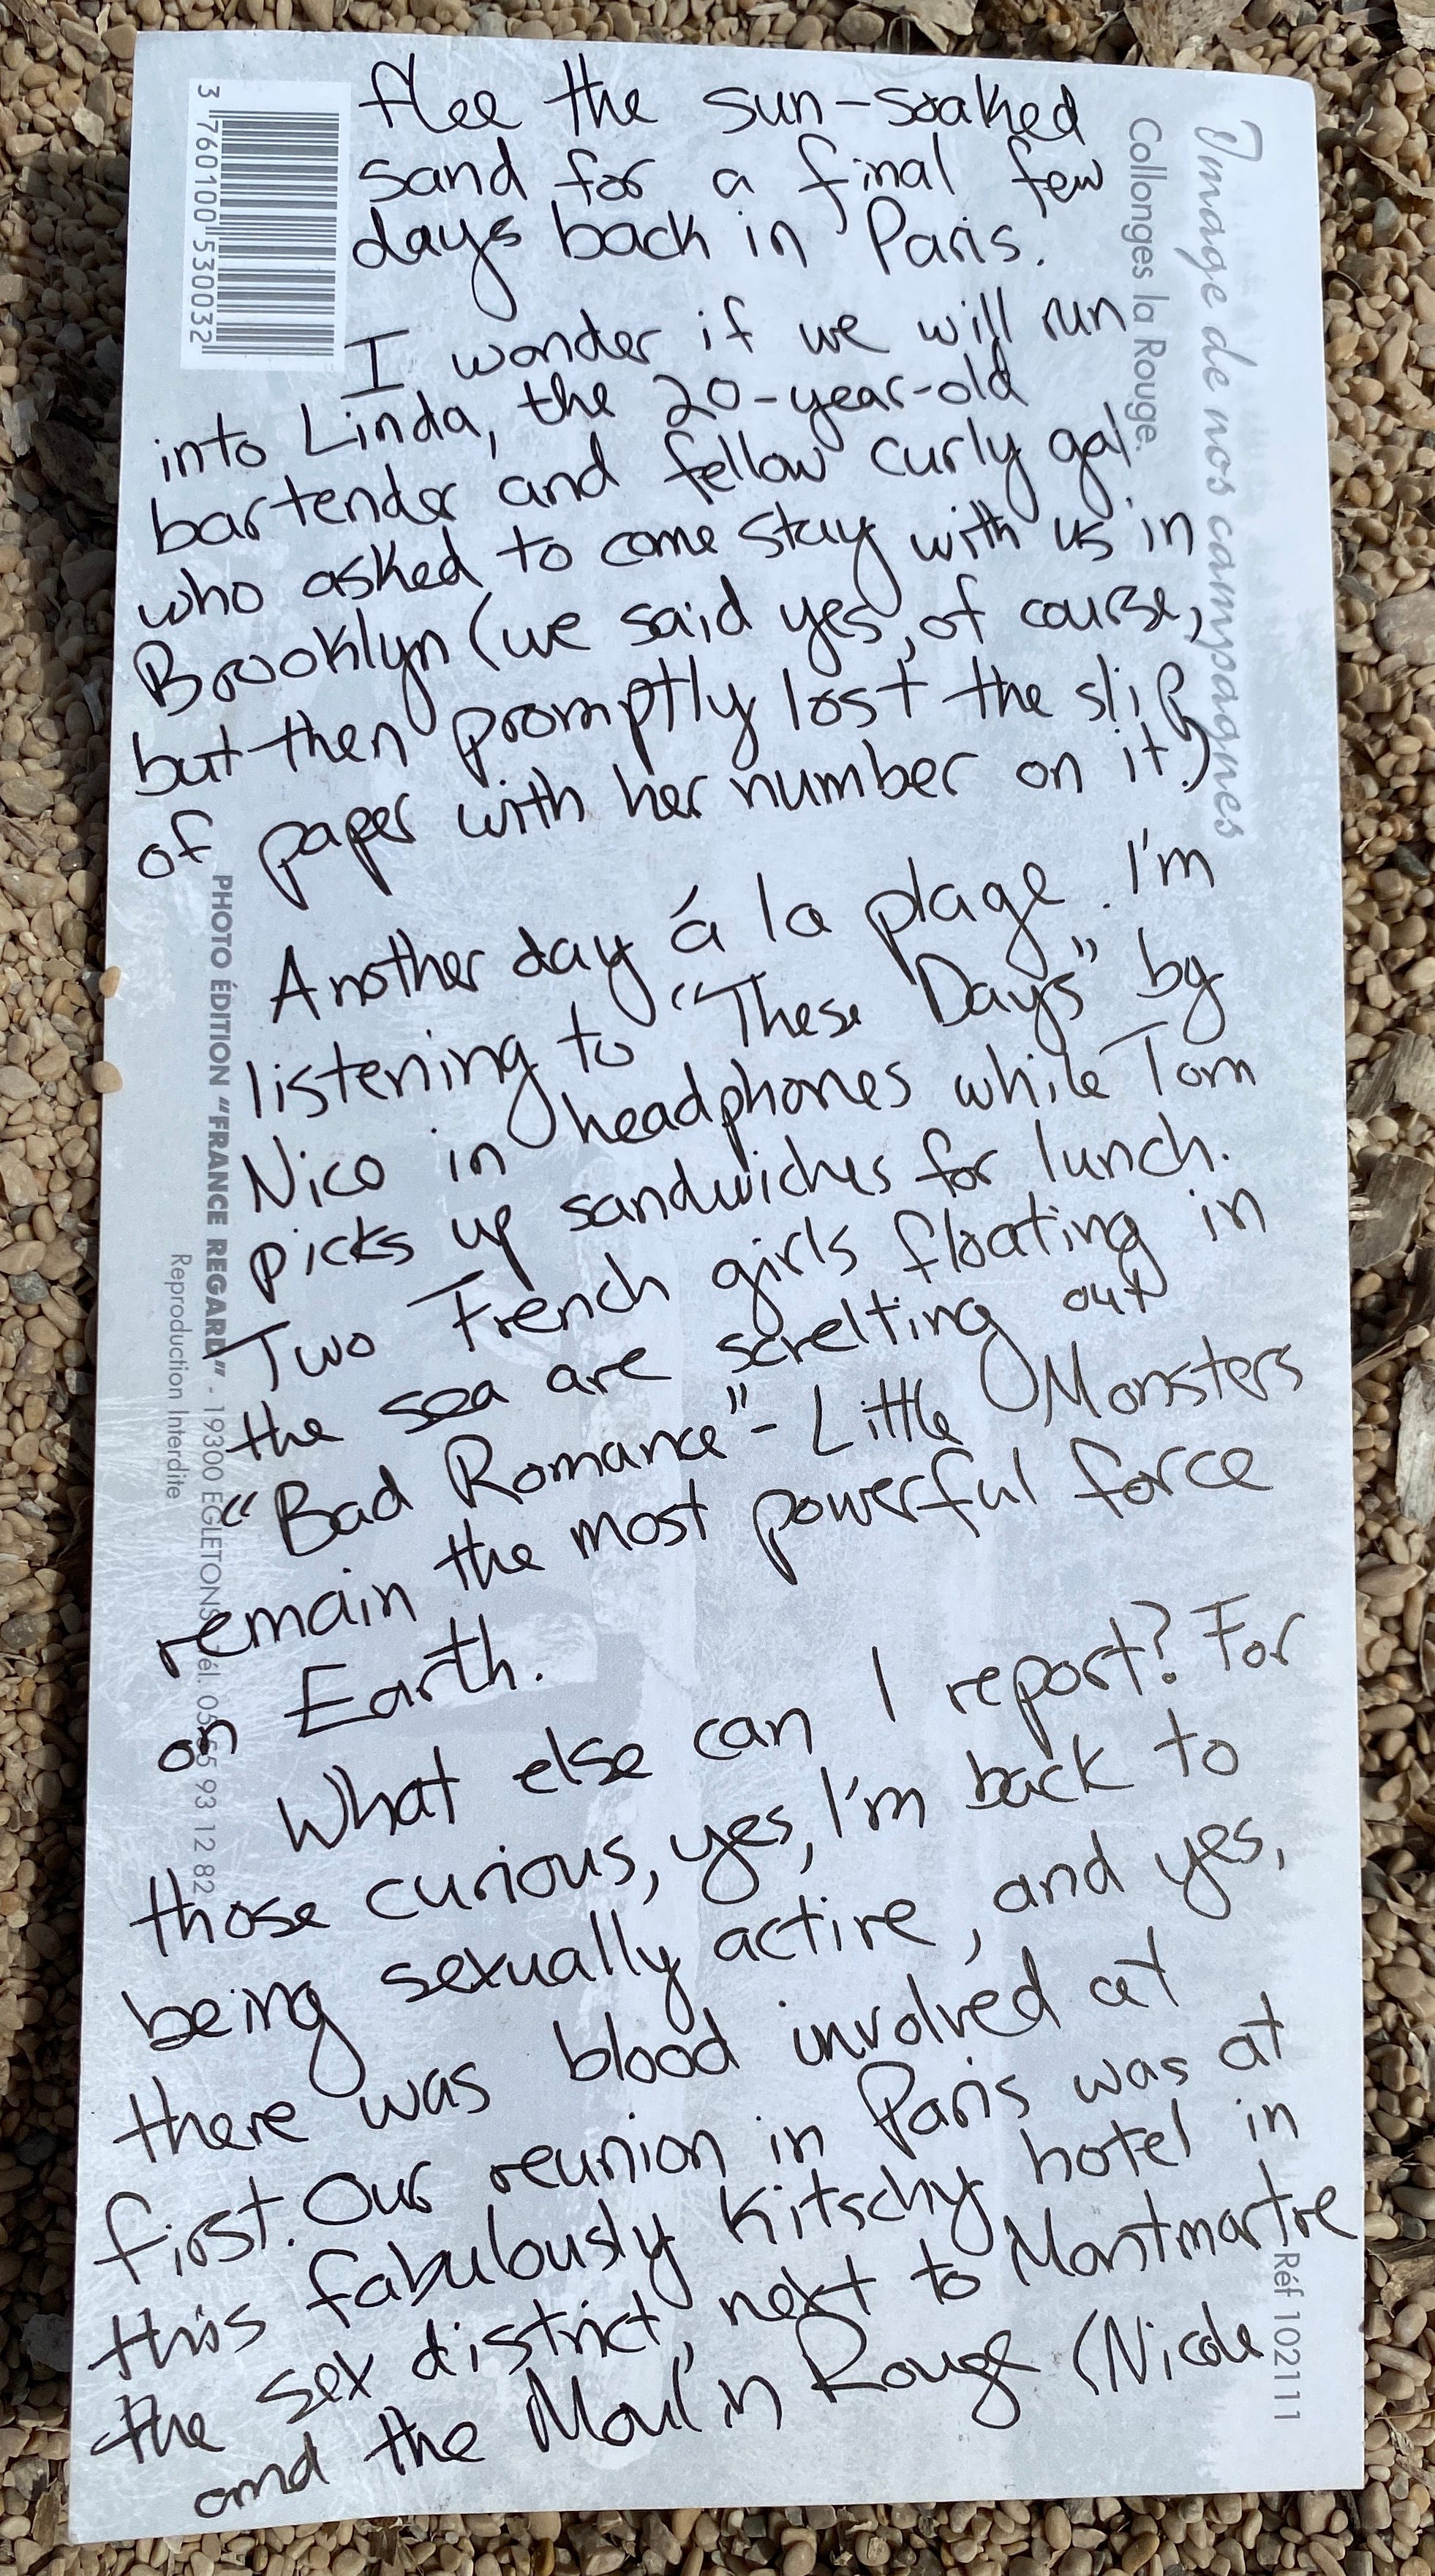 flee the sun-soaked
sand for a final few
days back in Paris.
I wonder if we will run
into Linda, the 20-year-old
bartender and fellow curly gal
who asked to come stay with us in
Brooklyn (we said yes, of course,
but then promptly lost the slip
of paper with her number on it.)
Another day á la plage. I'm
listening to "These Days" by
Nico in headphones while Tom
picks up sandwiches for lunch.
Two French girls floating in
the sea are screlting out
"Bad Romance" - Little Monsters
remain the most powerful force
on Earth.
What else can I report? For
those curious, yes, I'm back to
being sexually active, and yes,
there was blood involved at
first. Our reunion in Paris was at
this fabulously kitschy hotel in
the sex district, next to Montmartre
and the Moulin Rouge (Nicole
3 760100 530032
Image de nos campagnes
Collonges la Rouge.
PHOTO ÉDITION "FRANCE REGARD" - 19300 EGLETONS Tél. 05 55 93 12 82
Reproduction Interdite
Réf 102111